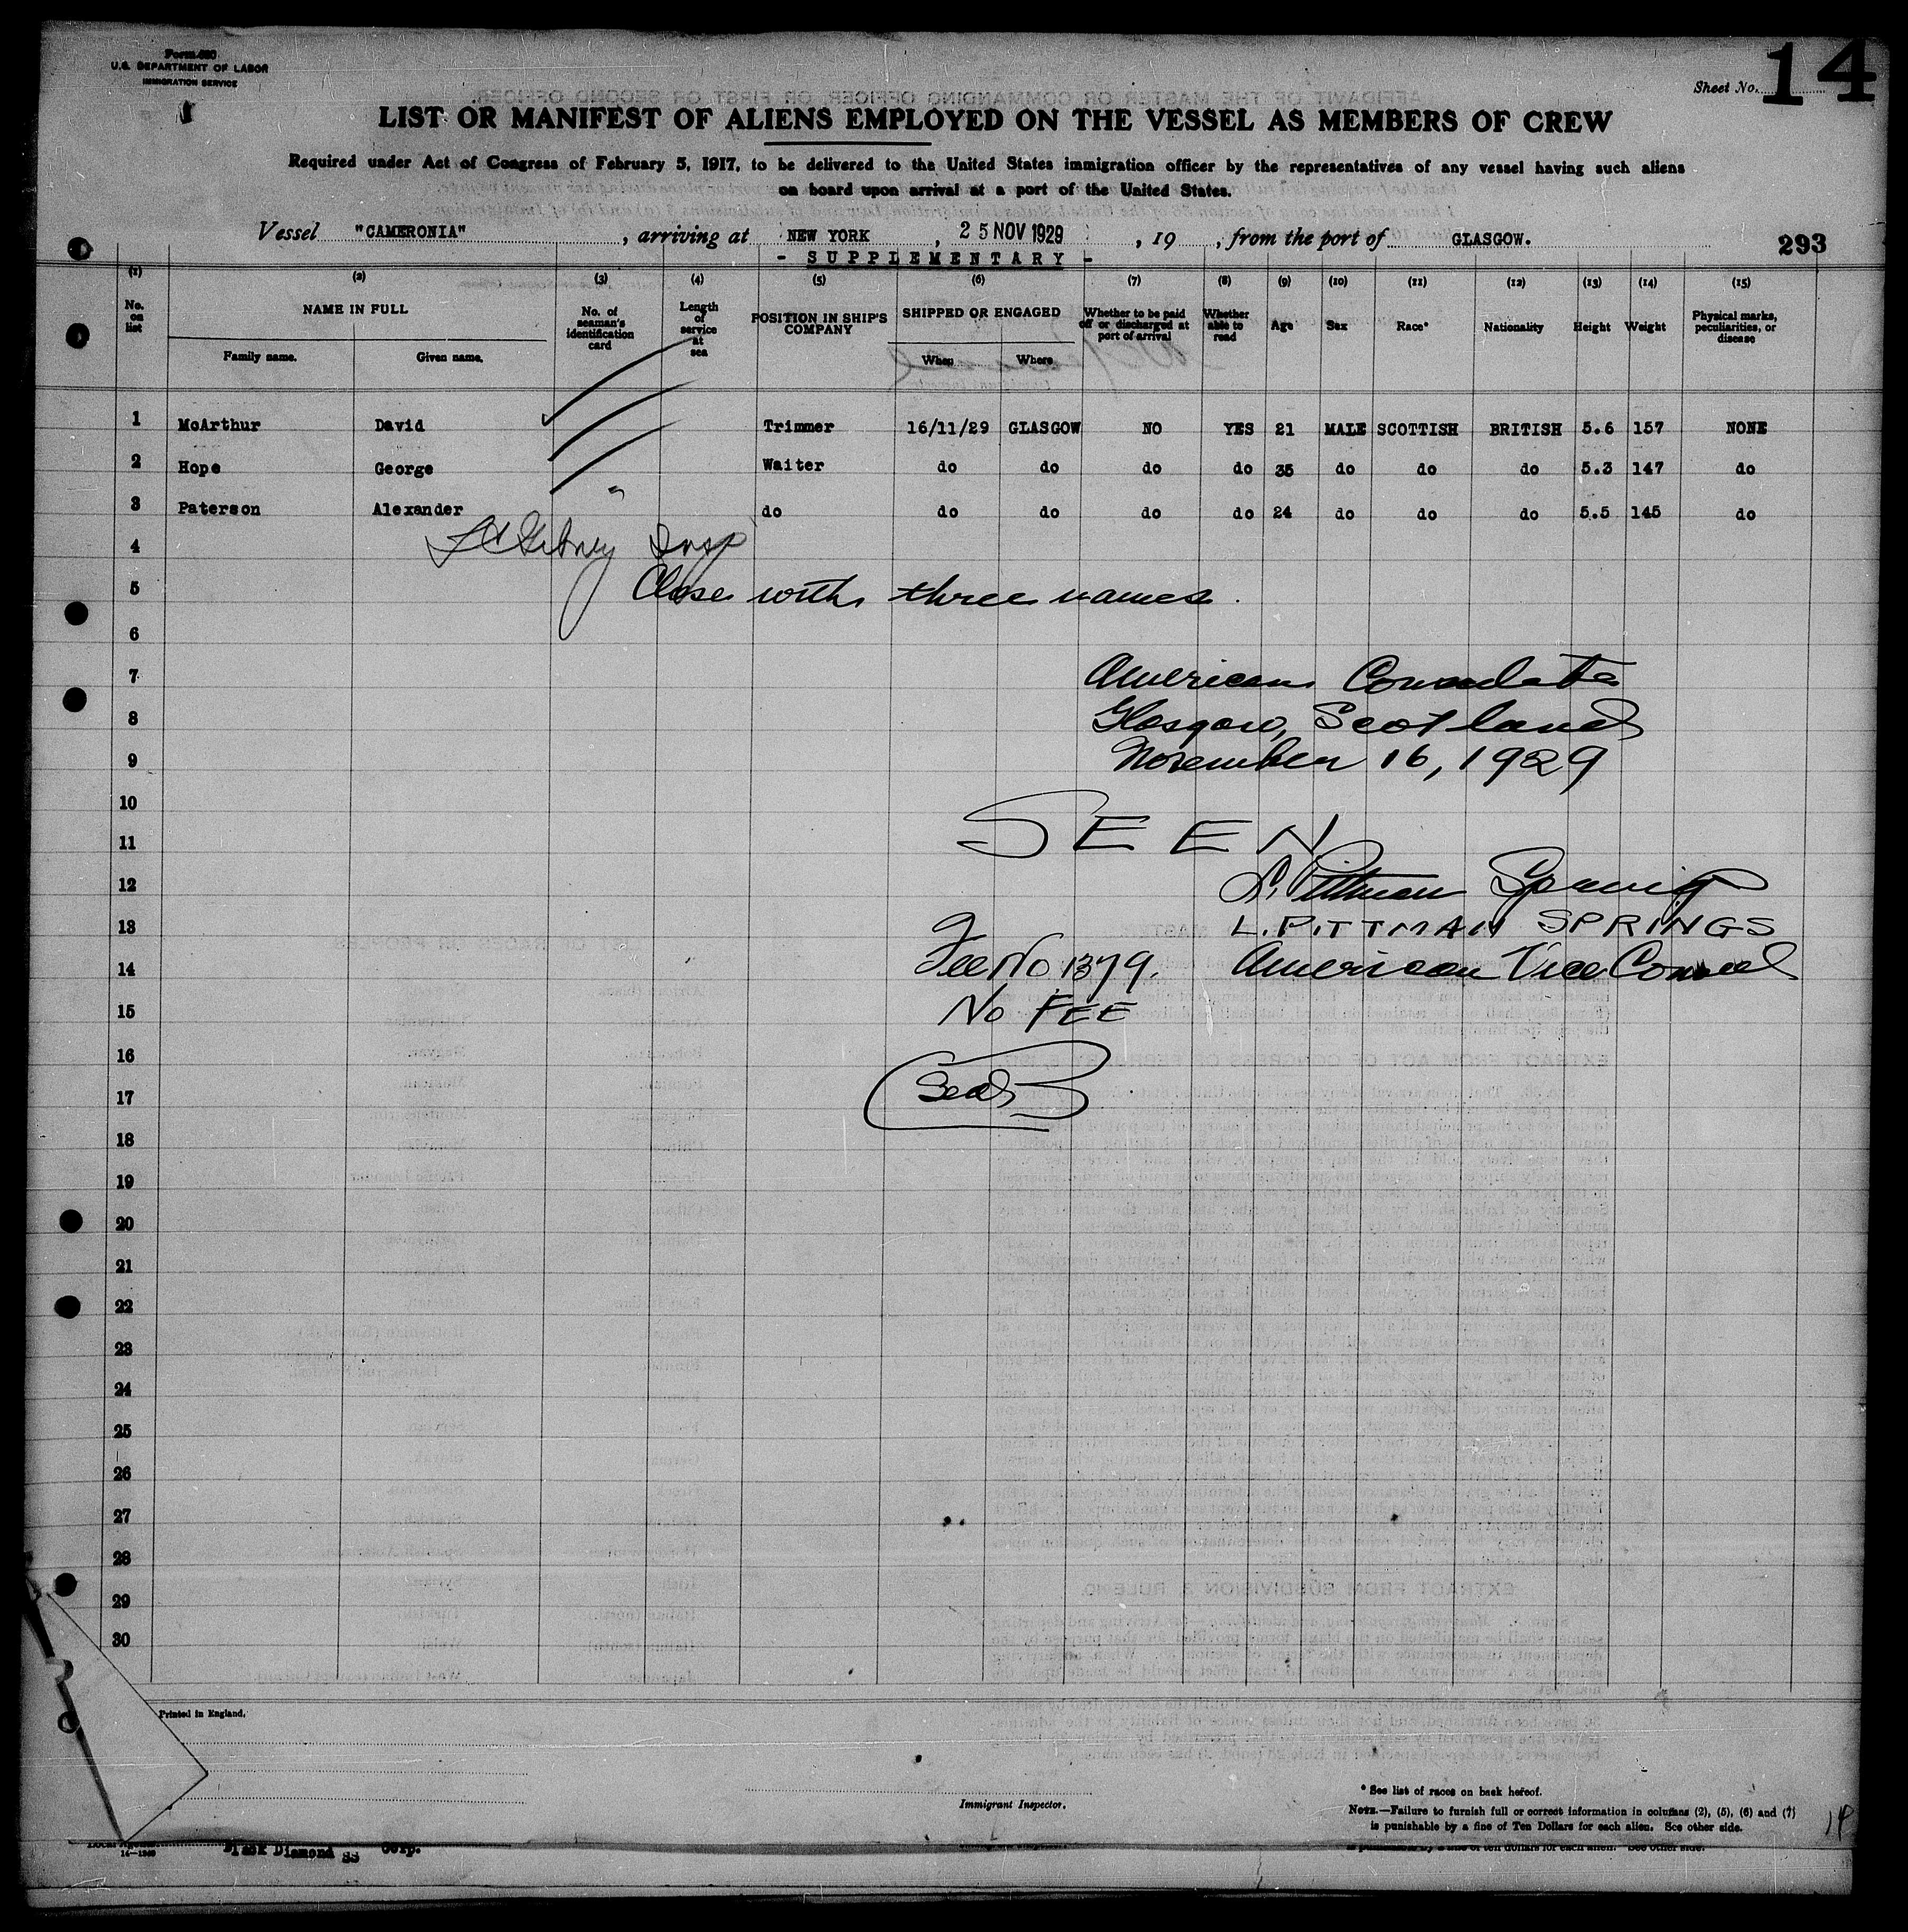 Form 680
U.S. DEPARTMENT OF LABOR
IMMIGRATION SERVICE
Sheet No. 14
LIST OR MANIFEST OF ALIENS EMPLOYED ON THE VESSEL AS MEMBERS OF CREW
Required under Act of Congress of February 5, 1917, to be delivered to the United States immigration officer by the representatives of any vessel having such aliens
on board upon arrival at a port of the United States.
Vessel "CAMERONIA", arriving at NEW YORK, 25 NOV 1929, 19, from the port of GLASGOW.
293
- SUPPLEMENTARY -
(1) (2) (3) (4) (5) (6) (7) (8) (9) (10) (11) (12) (13) (14) (15)
No. on list
NAME IN FULL
Family name. Given name.
No. of seaman's identification card
Length of service at sea
POSITION IN SHIP'S COMPANY
SHIPPED OR ENGAGED
When Where
Whether to be paid off or discharged at port of arrival
Whether able to read
Age
Sex
Race*
Nationality
Height
Weight
Physical marks, peculiarities, or disease
1 McArthur David Trimmer 16/11/29 GLASGOW NO YES 21 MALE SCOTTISH BRITISH 5.6 157 NONE
2 Hope George Waiter do do do do 35 do do do 5.3 147 do
3 Paterson Alexander do do do do do 24 do do do 5.5 145 do
4 Insp
5 Close with three names.
6
7 American Consulate
8 Glasgow, Scotland
9 November 16, 1929
10
11 SEEN
12 L. Pittman Springs
13 L. PITTMAN SPRINGS
14 Fee No 1379. American Vice Consul
15 No FEE
16
17 Seal
18
19
20
21
22
23
24
25
26
27
28
29
30
Printed in England.
Immigrant Inspector.
* See list of races on back hereof.
NOTE.—Failure to furnish full or correct information in columns (2), (5), (6) and (7)
is punishable by a fine of Ten Dollars for each alien. See other side.
14
Black Diamond SS Corp.
is punishable by a fine of ten dollars for each alien. See other side.